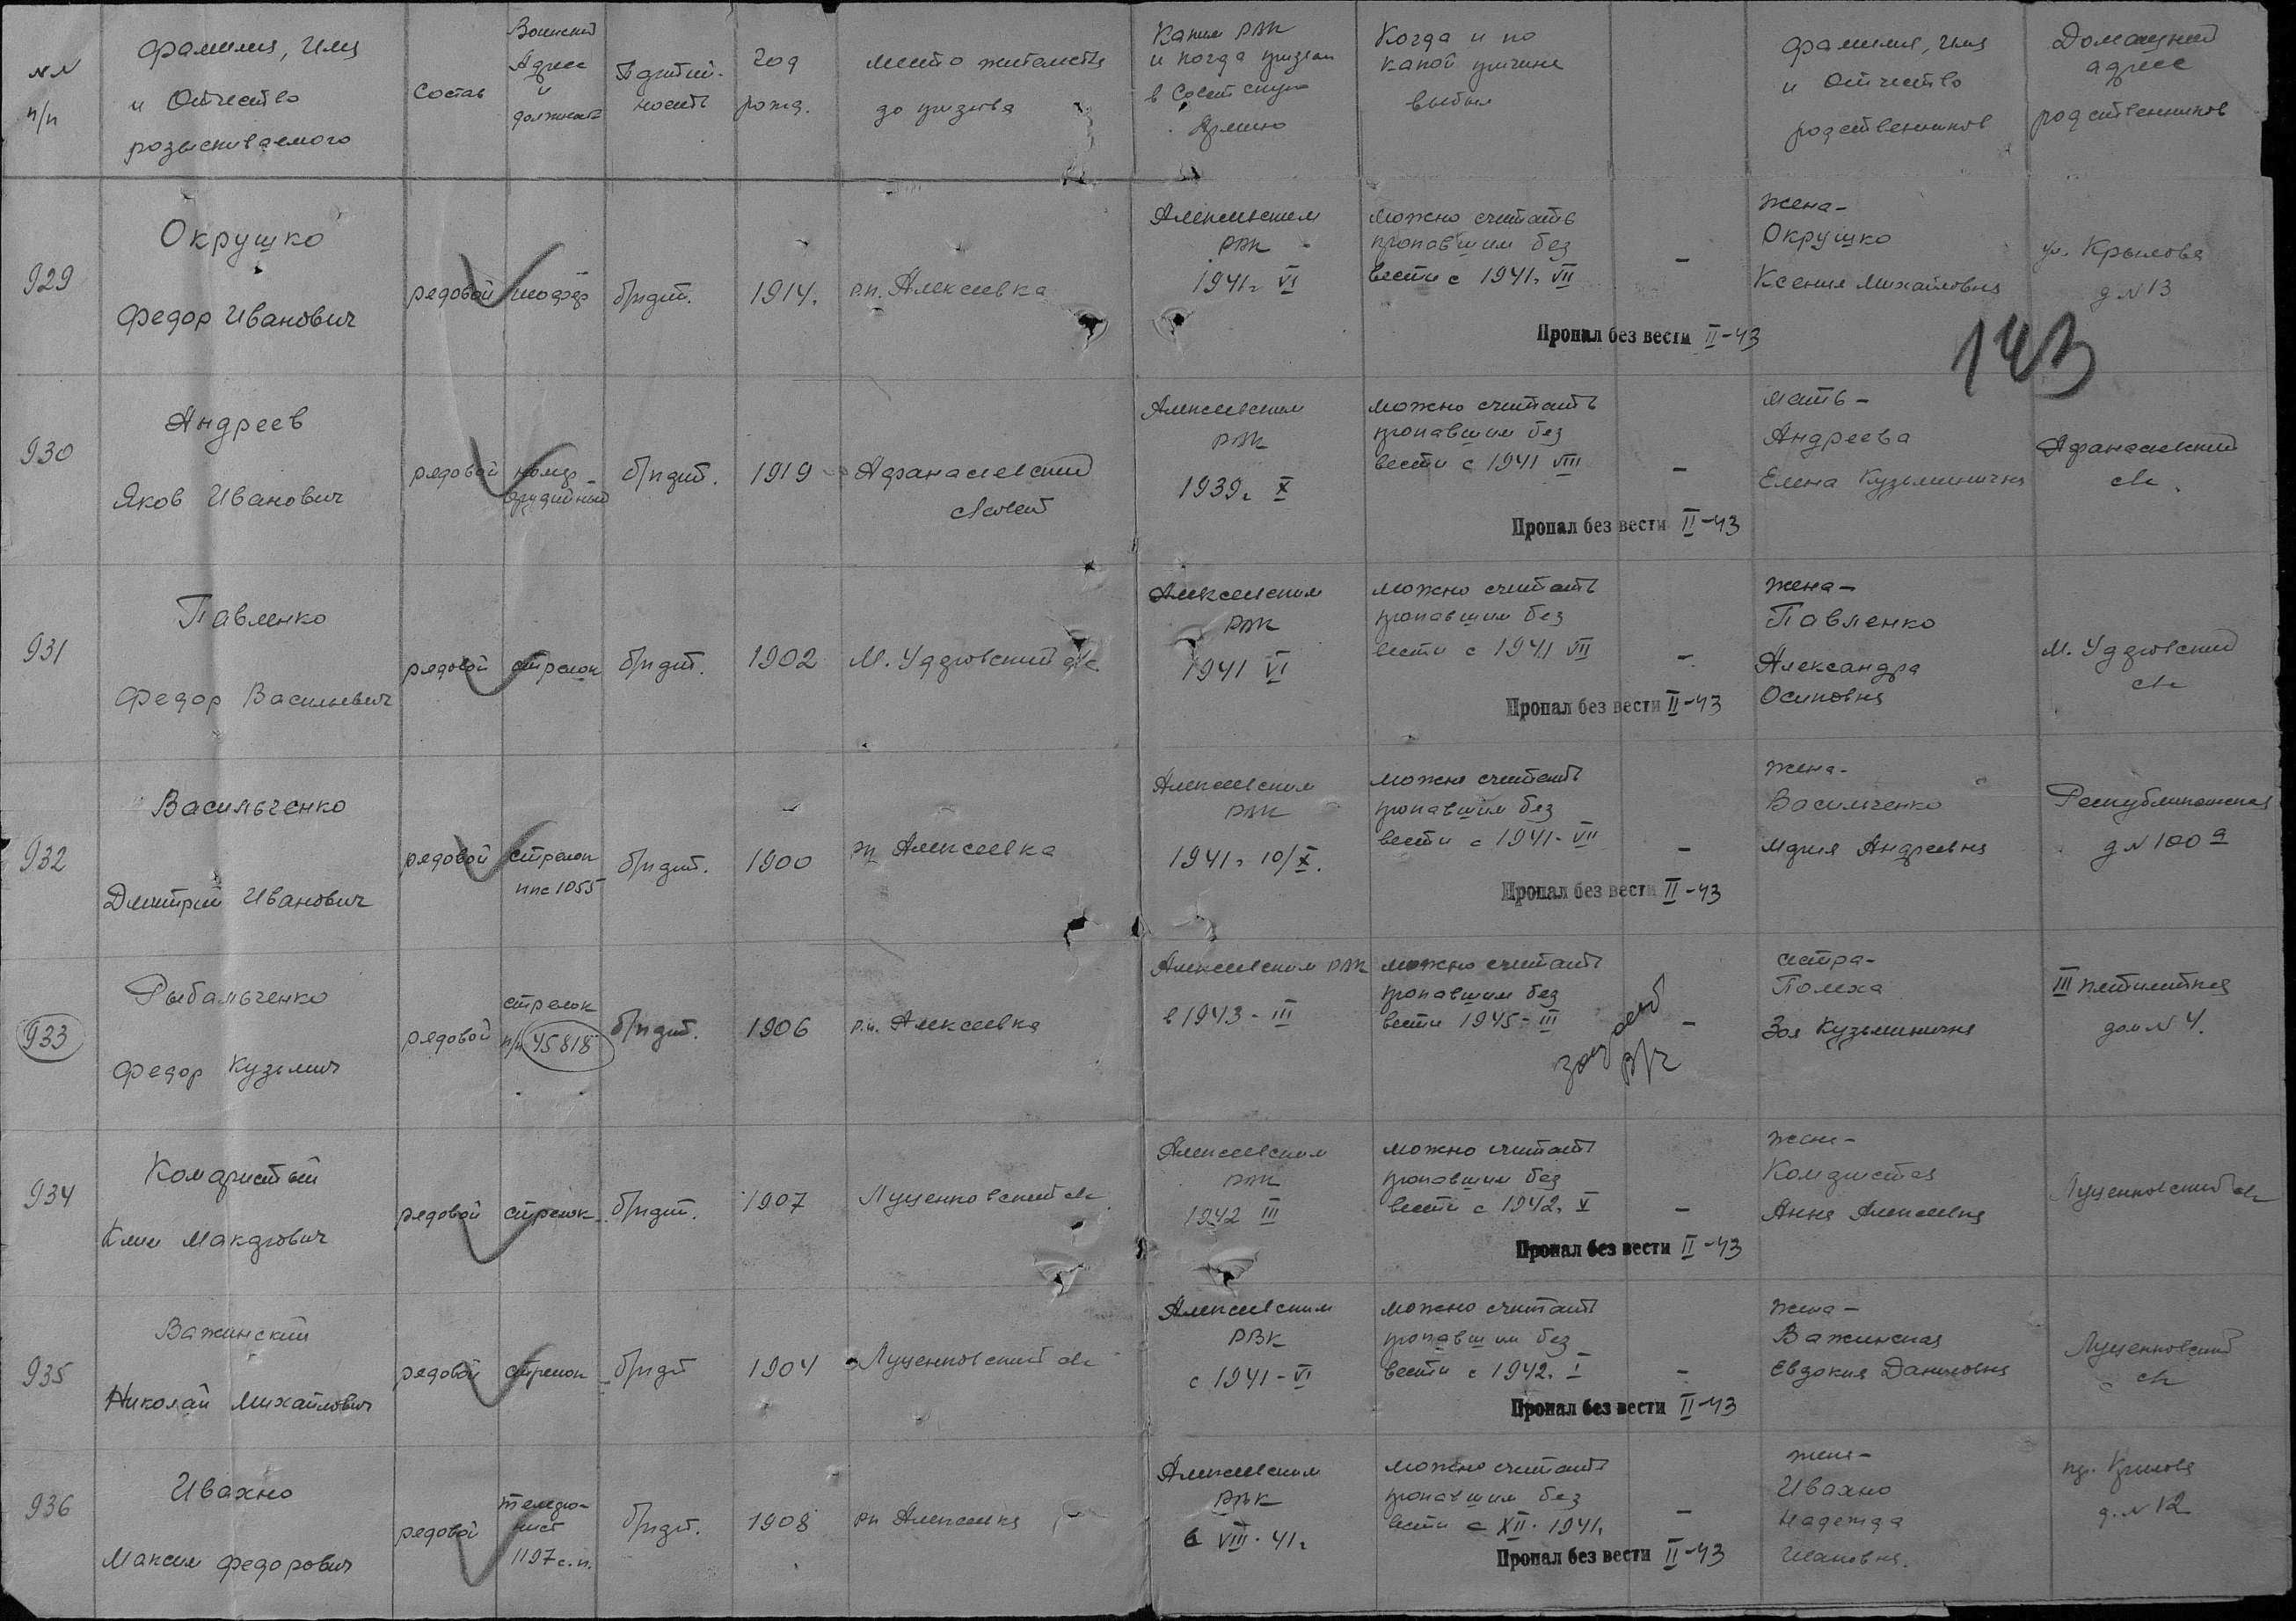 NN п/п
Фамилия, Имя и Отчество розыскиваемого
Состав
Воинский Адрес и должность
Партий-ность
Год рожд.
место жительства до призыва
Каким РВК и когда призван в Советскую Армию
Когда и по какой причине выбыл
Фамилия, имя и отчество родственников
Домашний адрес родственников
929
Окрушко
Федор Иванович
рядовой
шофер
б/парт.
1914г.
р.п. Алексеевка
Алексеевским
РВК
1941г. VI
можно считать
пропавшим без
вести с 1941г. VII
–
Пропал без вести II-43
жена-
Окрушко
Ксения Михайловна
ул. Крылова
д N 13
143
930
Андреев
Яков Иванович
рядовой
номер
орудийный
б/парт.
1919
Афанасиевский
с/совет
Алексеевским
РВК
1939г. X
можно считать
пропавшим без
вести с 1941 VIII
–
Пропал без вести II-43
мать-
Андреева
Елена Кузьминична
Афанасиевский
с/с.
931
Павленко
Федор Васильевич
рядовой
стрелок
б/парт.
1902
М. Удеровский с/с
Алексеевским
РВК
1941 VI
можно считать
пропавшим без
вести с 1941 VII
–
Пропал без вести II-43
жена-
Павленко
Александра
Осиповна
М. Удеровский
с/с
932
Васильченко
Дмитрий Иванович
рядовой
стрелок
ппс 1055
б/парт.
1900
рп Алексеевка
Алексеевским
РВК
1941г. 10/X.
можно считать
пропавшим без
вести с 1941- VII
–
Пропал без вести II-43
жена-
Васильченко
Мария Андреевна
Республиканская
д N 100 а
933
Рыбальченко
Федор Кузьмич
рядовой
стрелок
п/п 45818
б/парт.
1906
р.п. Алексеевка
Алексеевским РВК
в 1943 - III
можно считать
пропавшим без
вести 1945- III
–
сестра-
Полеха
Зоя Кузьминична
III пятилетка
дом N 4.
934
Комаристый
Клим Макарович
рядовой
стрелок
б/парт.
1907
Луценковский с/с
Алексеевским
РВК
1942 III
можно считать
пропавшим без
вести с 1942г. V
–
Пропал без вести II-43
жена-
Комаристая
Анна Алексеевна
Луценковский с/с
935
Важинский
Николай Михайлович
рядовой
стрелок
б/парт
1904
Луценковский с/с
Алексеевским
РВК
с 1941 - VI
можно считать
пропавшим без
вести с 1942г. I
–
Пропал без вести II-43
жена-
Важинская
Евдокия Даниловна
Луценковский
с/с
936
Ивахно
Максим Федорович
рядовой
телефо-
нист
1197 с.п.
б/парт.
1908
рп Алексеевка
Алексеевским
РВК
в VIII. 41г.
можно считать
пропавшим без
вести с XII. 1941г.
–
Пропал без вести II-43
жена-
Ивахно
Надежда
Крылова
д. N 12